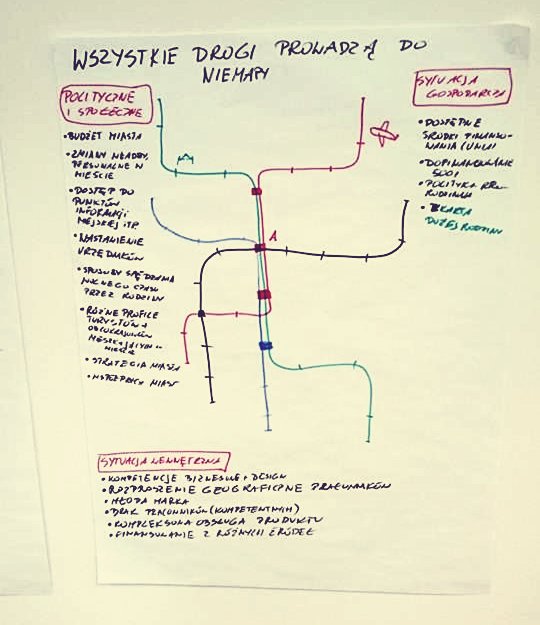 WSZYSTKIE DROGI PROWADZĄ DO
NIEMAPY
POLITYCZNE
I SPOŁECZNE
• BUDŻET MIASTA
• ZMIANY WŁADZY,
PERSONALNE W
MIEŚCIE
• DOSTĘP DO
PUNKTÓW
INFORMACJI
MIEJSKIEJ ITP.
• NASTAWIENIE
URZĘDNIKÓW
• SPOSOBY SPĘDZANIA
WOLNEGO CZASU
PRZEZ RODZINY
• RÓŻNE PROFILE
TURYSTÓW +
• STRATEGIA MIASTA
A
SYTUACJA
GOSPODARCZA
• DOSTĘPNE
ŚRODKI FINANSO-
WANIA (UNIJ)
500+
• POLITYKA PRO-
RODZINNA
• KARTA
DUŻEJ RODZINY
SYTUACJA WEWNĘTRZNA
• KOMPETENCJE BIZNESOWE + DESIGN
• ROZPROSZENIE GEOGRAFICZNE PRACOWNIKÓW
• MŁODA MARKA
• BRAK PRACOWNIKÓW (KOMPETENTNYCH)
• KOMPLEKSOWA OBSŁUGA PRODUKTU
• FINANSOWANIE Z RÓŻNYCH ŹRÓDEŁ